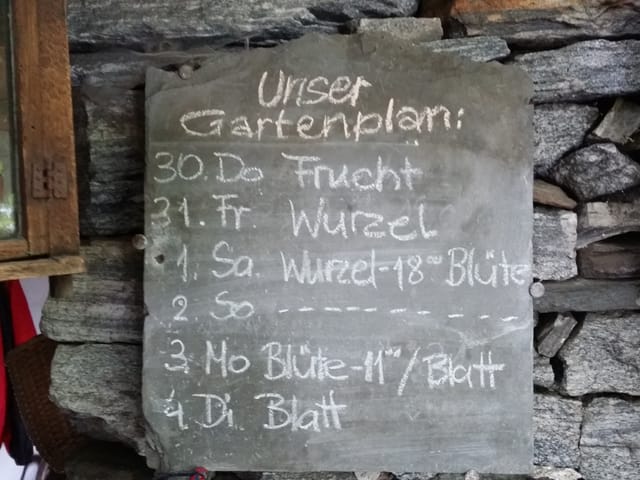 Unser
Gartenplan:
30. Do Frucht
31. Fr. Wurzel
1. Sa. Wurzel-18⁰⁰ Blüte
2. So ------------
3. Mo Blüte-11⁰⁰/Blatt
4. Di Blatt